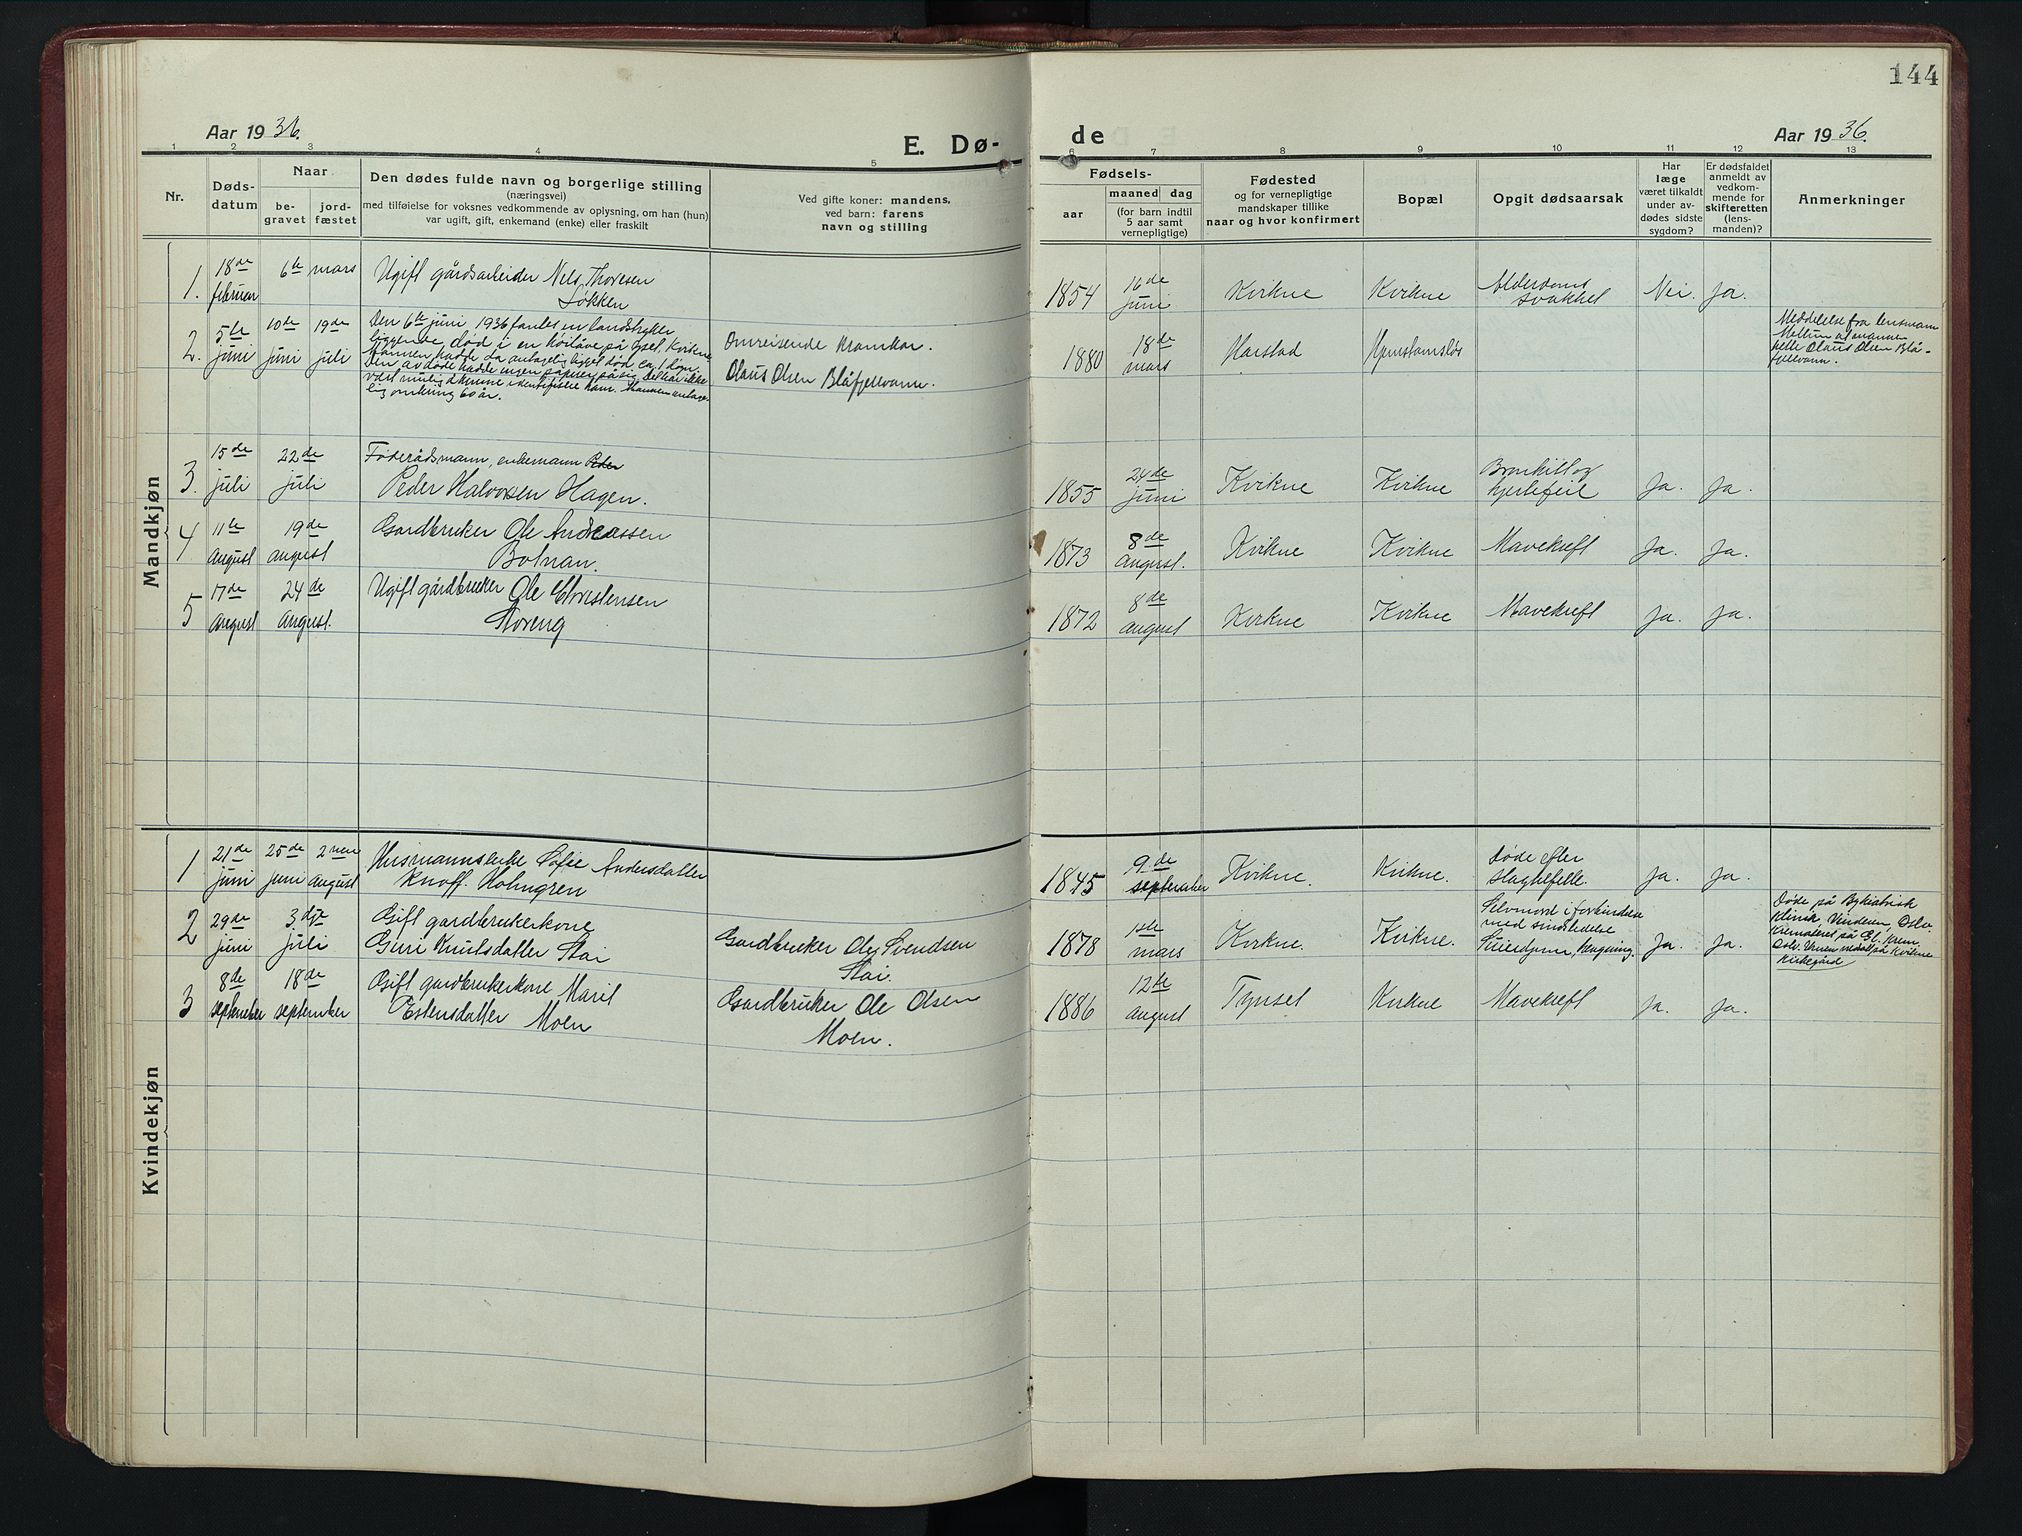 144
Aar 1936.
E. Dø-
de
Aar 1936.
1 2 3 4 5 6 7 8 9 10 11 12 13
Nr.
Døds-
datum
Naar
be-
gravet
jord-
fæstet
Den dødes fulde navn og borgerlige stilling
(næringsvei)
med tilføielse for voksnes vedkommende av oplysning, om han (hun)
var ugift, gift, enkemand (enke) eller fraskilt
Ved gifte koner: mandens,
ved barn: farens
navn og stilling
Fødsels-
aar
maaned dag
(for barn indtil
5 aar samt
vernepligtige)
Fødested
og for vernepligtige
mandskaper tillike
naar og hvor konfirmert
Bopæl
Opgit dødsaarsak
Har
læge
været tilkaldt
under av-
dødes sidste
sygdom?
Er dødsfaldet
anmeldt av
vedkom-
mende for
skifteretten
(lens-
manden)?
Anmerkninger
Mandkjøn
1. 18de februar 6te mars
Ugift gårdsarbeider Nels Thoresen
Løkken
1854 16de juni Kvikne Kvikne Alderdoms
svakhet Nei. Ja.
2. 5te juni 10de juni 19de juli
Den 6te juni 1936 fantes en landstryker
liggende død i en höilåve på Yset, Kvikne
Mannen hadde da antagelig ligget død ca. 1 døgn.
Den avdøde hadde ingen papirer på sig. Det har ikke
vært mulig å kunne identifisere ham. Mannen antage-
lig omkring 60 år.
Omreisende kramkar.
Olaus Olsen Blåfjellvann.
1880 18de mars Harstad Hjemstamsløs
Meddelelse fra lensmann
Mellum at mannen
hette Olaus Olsen Blå-
fjellvann.
3. 15de juli 22de juli
Føderådsmann, enkemann Peder
Peder Halvorsen Hagen.
1855 24de juni Kvikne Kvikne Bronkitt og
hjertefeil Ja. Ja.
4 11te august 19de august
Gardbruker Ole Andreassen
Botnan.
1873 8de august. Kvikne Kvikne Mavekreft Ja. Ja.
5 17de august 24de august.
Ugift gårdbruker Ole Christensen
Storeng
1872 8de august Kvikne Kvikne Mavekreft Ja. Ja.
Kvindekjøn
1 21de juni 25de juni 2nen august
Husmannsenke Sofie Andersdatter
Knoff. Holmgren
1845 9de september Kvikne. Kvikne. Døde efter
slagtilfelle. Ja. Ja.
2 29de juni 3dje juli
Gift gardbrukerkone
Guri Knutsdatter Stai
Gardbruker Ole Svendsen
Stai.
1878 1ste mars Kvikne. Kvikne. Selvmord i forbindelse
med sindslidelse
Hengning. Ja. Ja.
Døde på Psykiatrisk
Klinik Vinderen, Oslo
Kremateret på Gl. Krem.
Oslo. Urnen nedsatt på Kvikne
Kirkegård
3 8de september 18de september
Gift gardbrukerkone Marit
Estensdatter Moen
Gardbruker Ole Olsen
Moen.
1886 12te august Tynset Kvikne Mavekreft Ja. Ja.